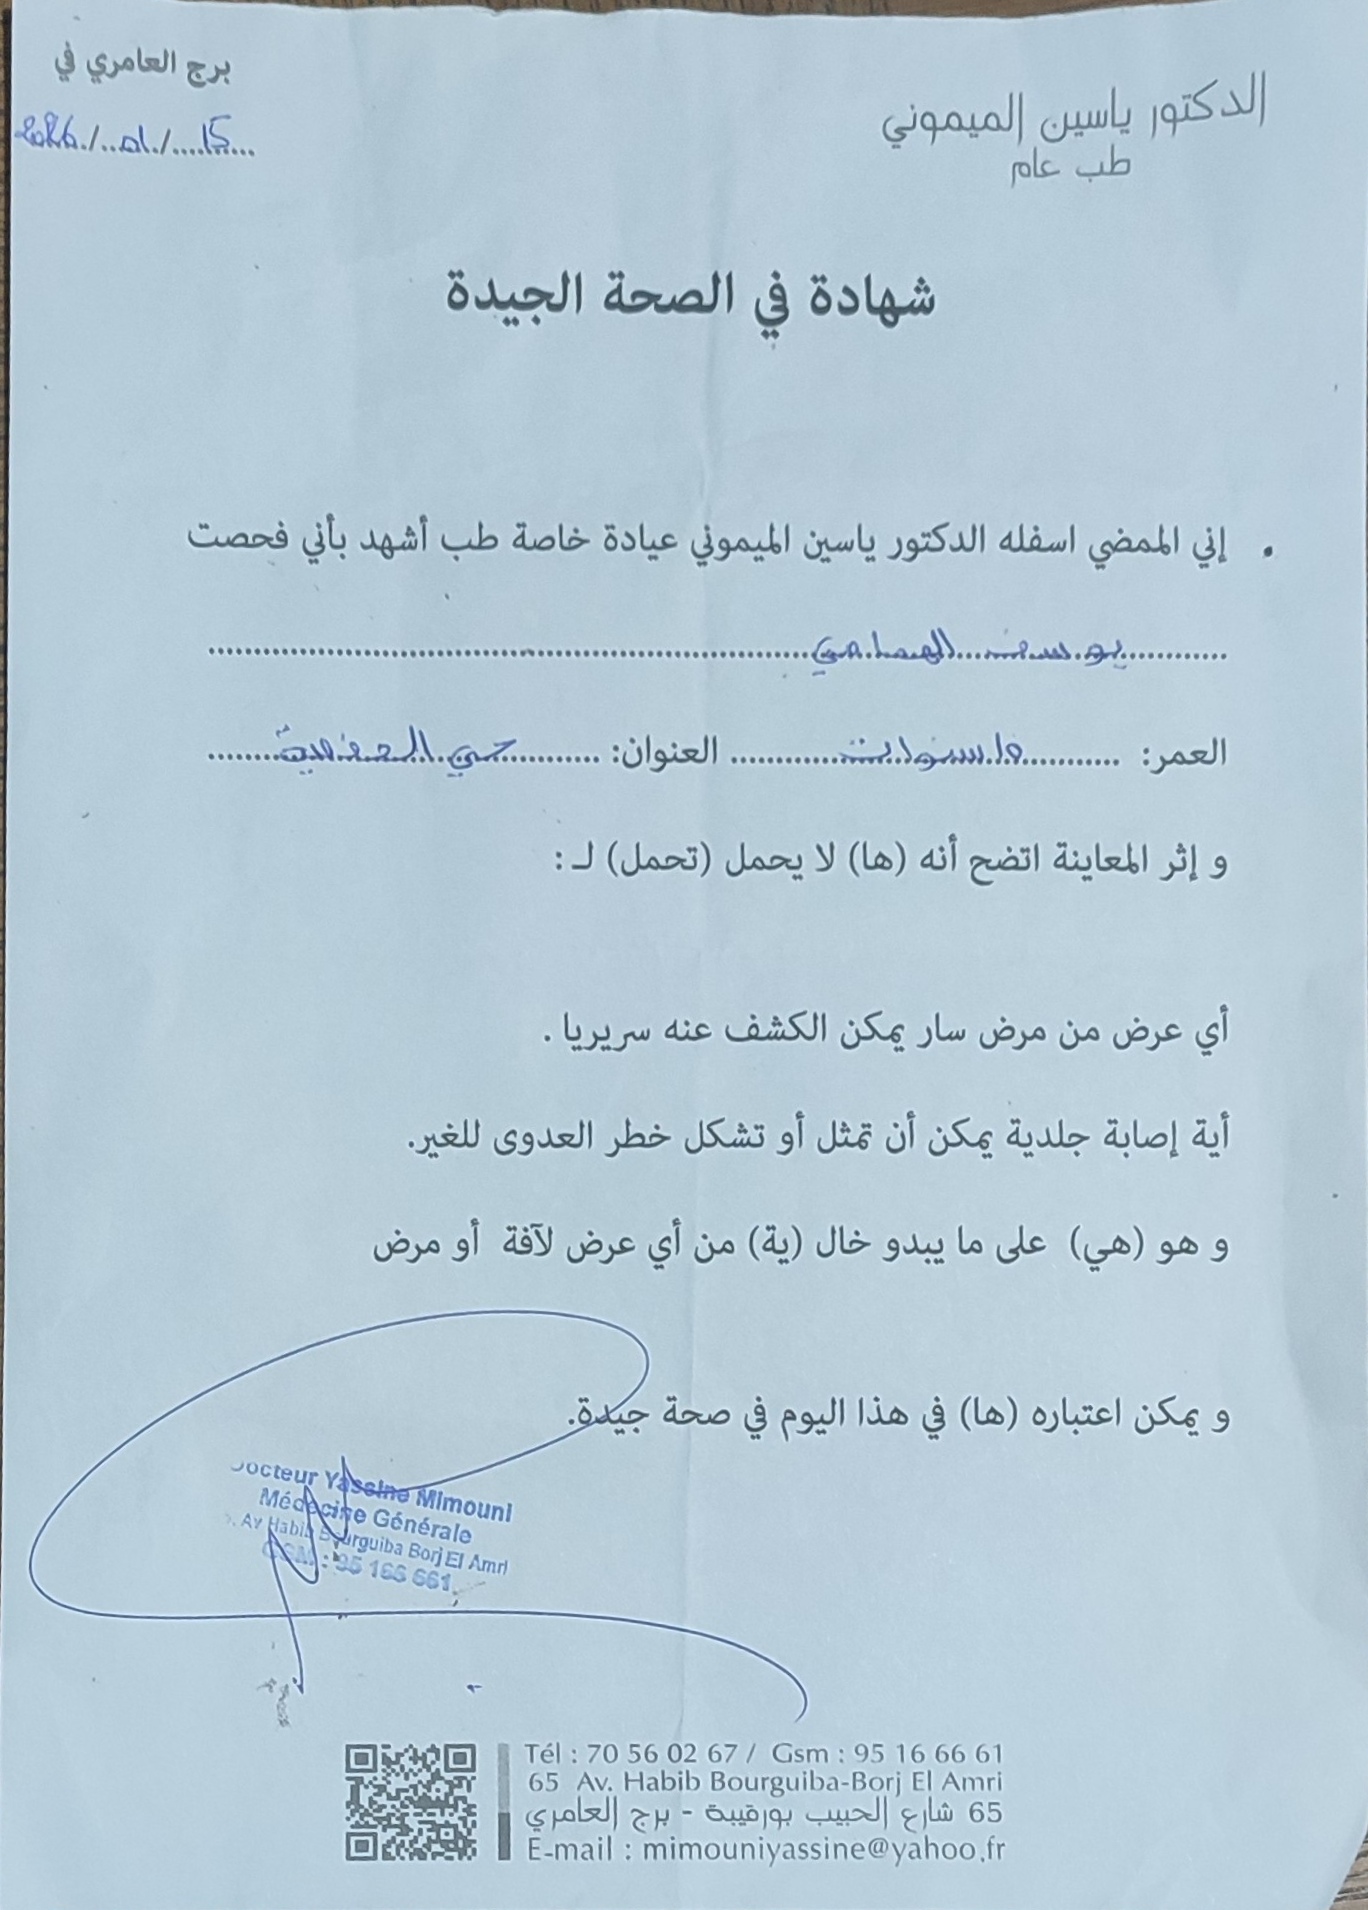 الدكتور ياسين الميموني
طب عام
برج العامري في
15/01/2026
شهادة في الصحة الجيدة
• إني الممضي اسفله الدكتور ياسين الميموني عيادة خاصة طب أشهد بأني فحصت
يوسف
العمر: سنوات العنوان: حي
و إثر المعاينة اتضح أنه (ها) لا يحمل (تحمل) لـ :
أي عرض من مرض سار يمكن الكشف عنه سريريا .
أية إصابة جلدية يمكن أن تمثل أو تشكل خطر العدوى للغير.
و هو (هي) على ما يبدو خال (ية) من أي عرض لآفة أو مرض
و يمكن اعتباره (ها) في هذا اليوم في صحة جيدة.
Docteur Yassine Mimouni
Médecine Générale
Av Habib Bourguiba Borj El Amri
GSM : 95 166 661
Tél : 70 56 02 67 / Gsm : 95 16 66 61
65 Av. Habib Bourguiba-Borj El Amri
65 شارع الحبيب بورقيبة - برج العامري
E-mail : mimouniyassine@yahoo.fr